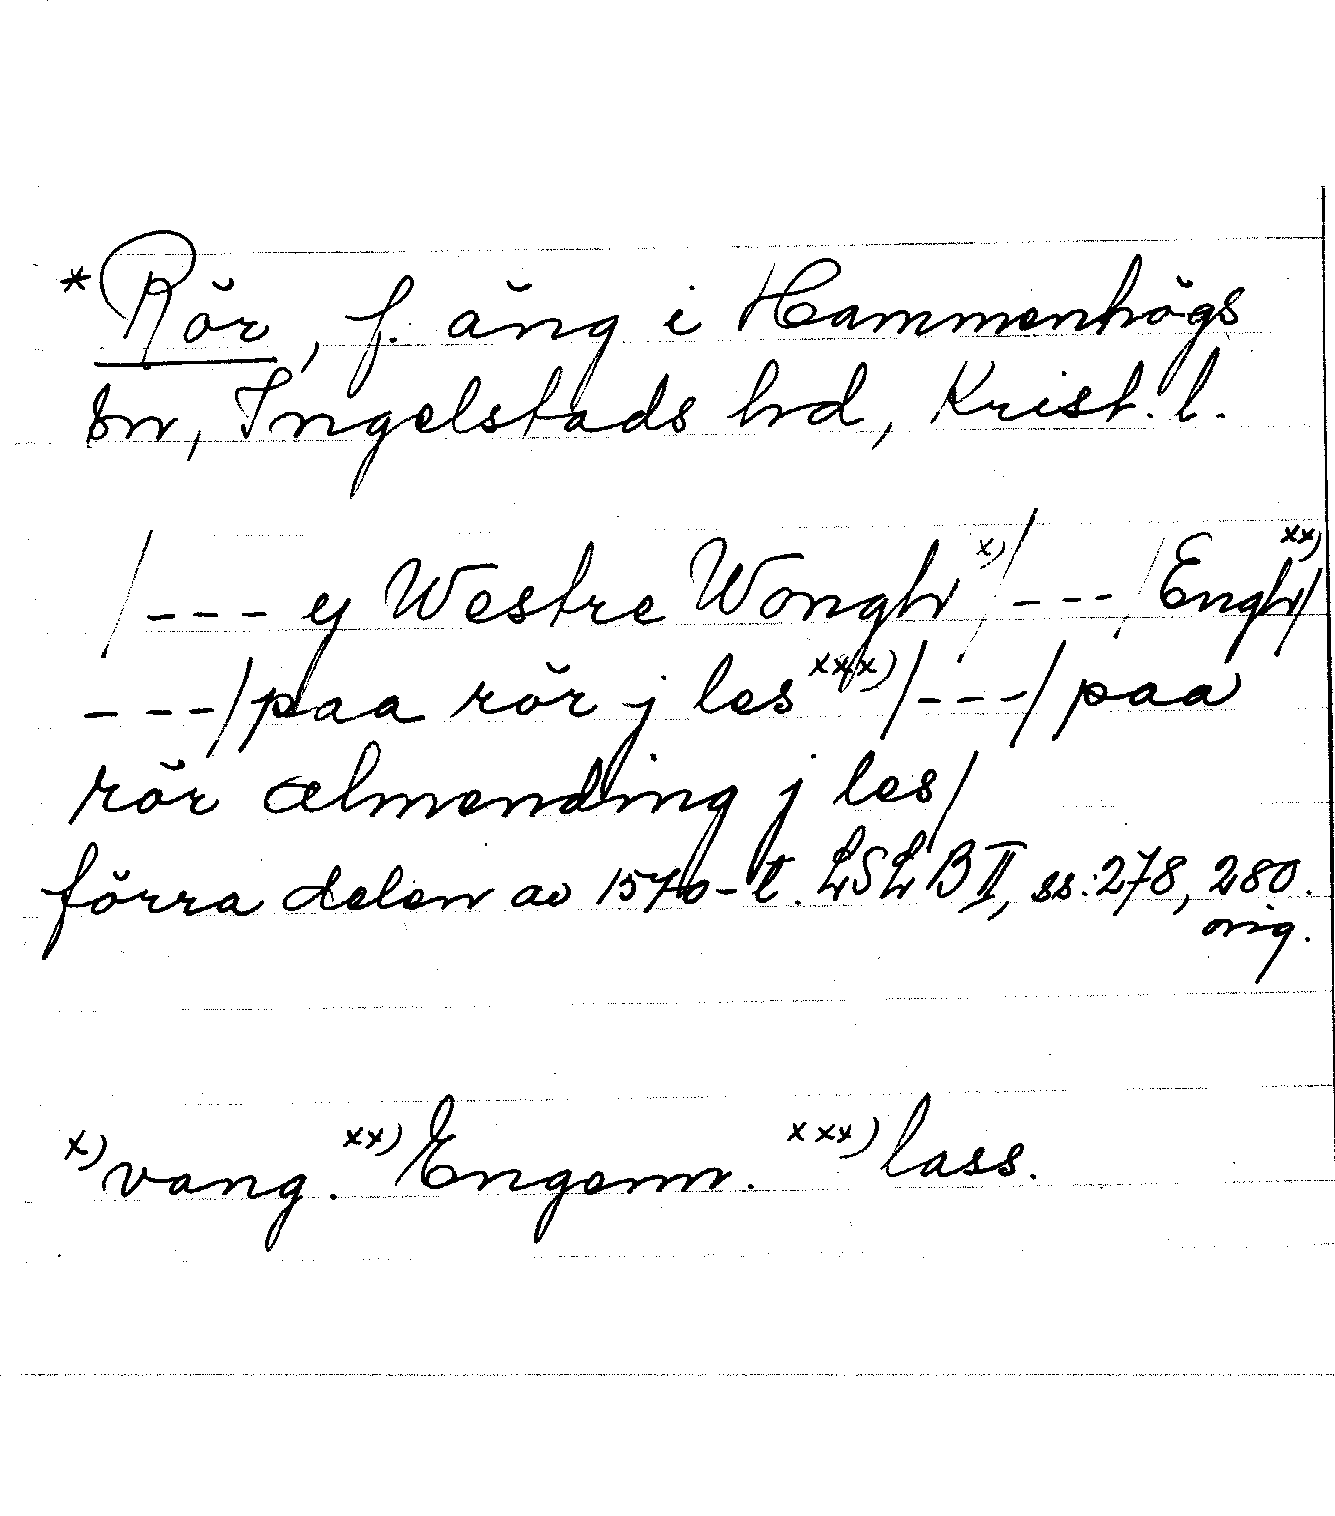 *Rör, f. äng i Hammenhögs
sn, Ingelstads hd, Krist. l.
/--- ij Westre Wongh x)/---/Engh xx)/
---/paa rör j les xxx)/---/paa
rör almending j les/
förra delen av 1570-t. LSLB II, ss. 278, 280.
orig.
x) vang. xx) Engenn. xxx) lass.